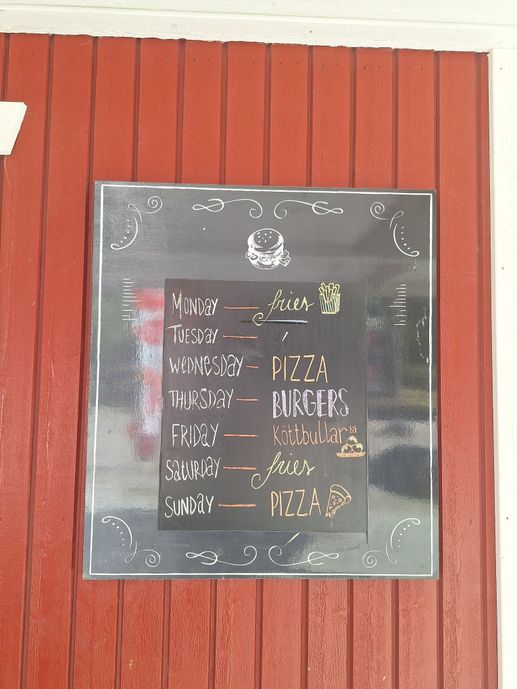 MONDAY — fries
TUESDAY —
WEDNESDAY - PIZZA
THURSDAY — BURGERS
FRIDAY — Köttbullar
SATURDAY — fries
SUNDAY — PIZZA